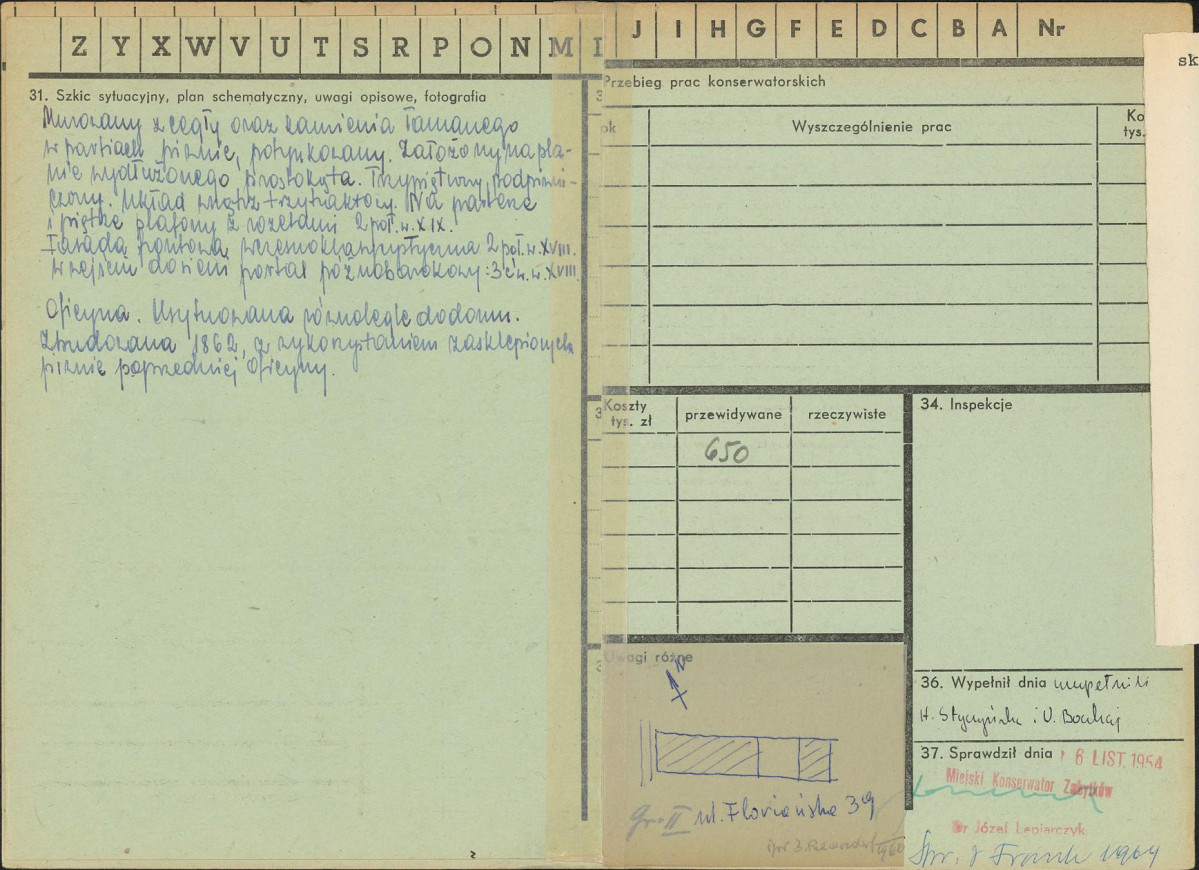 Z Y X W V U T S R P O N M
J I H G F E D C B A Nr
sk
31. Szkic sytuacyjny, plan schematyczny, uwagi opisowe, fotografia
Murowany z cegły oraz kamienia łamanego
w partiach piwnic, potynkowany. Założony na pla-
nie wydłużonego prostokąta. Trzypiętrowy, podpiwni-
czony. Układ wnętrz trzytraktowy. Na parterze
i piętrze plafony z rozetami 2 poł. w. XIX.
Fasada frontowa wczesnoklasycystyczna 2 poł. w. XVIII.
w sieni portal późnobarokowy: 3 ćw. w. XVIII
Oficyna. Usytuowana równolegle do domu.
Zbudowana 1862, z wykorzystaniem zasklepionych
piwnic poprzedniej oficyny.
Przebieg prac konserwatorskich
ok
Wyszczególnienie prac
Ko
tys.
Koszty
tys. zł
przewidywane
rzeczywiste
650
34. Inspekcje
Uwagi różne
N
Gr. II ul. Floriańska 39
1960
36. Wypełnił dnia wypełnili
H. Styczyńska i
37. Sprawdził dnia 6 LIST. 1954
Miejski Konserwator Zabytków
Dr Józef Lepiarczyk
Spr. J Frank 1964